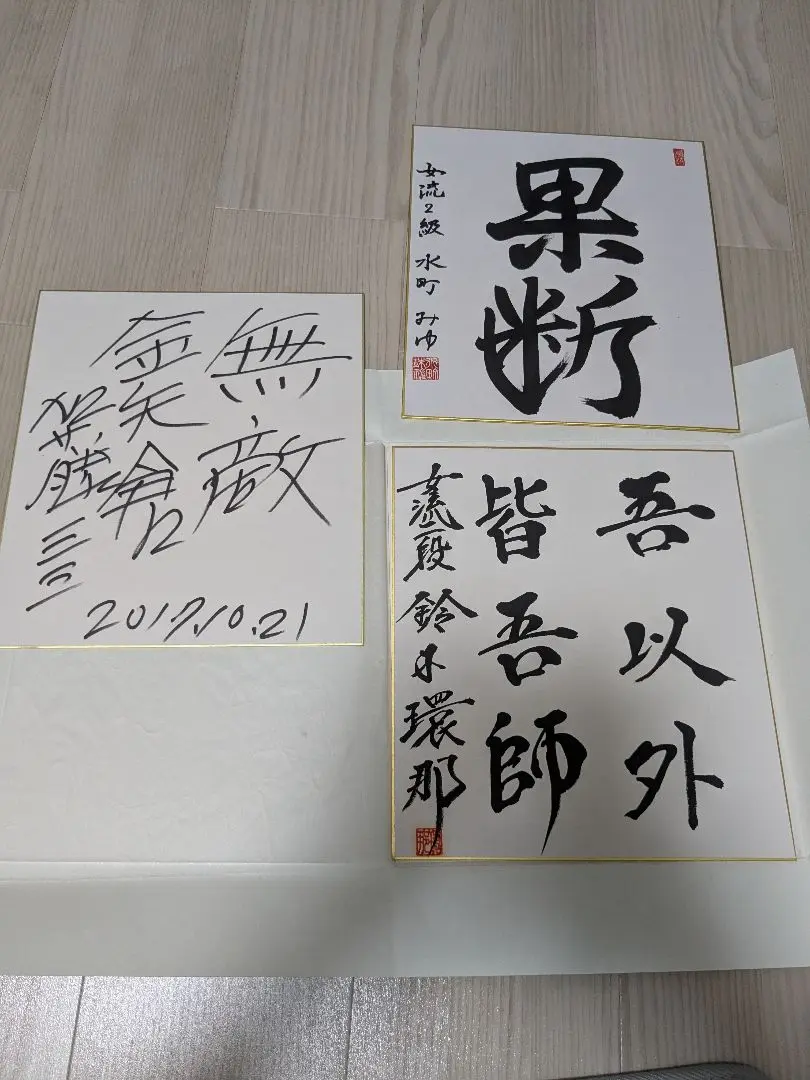 無敵
金矢倉
加藤一二三
2017.10.21
果断
女流2級 水町 みゆ
吾以外
皆吾師
女流二段 鈴木環那